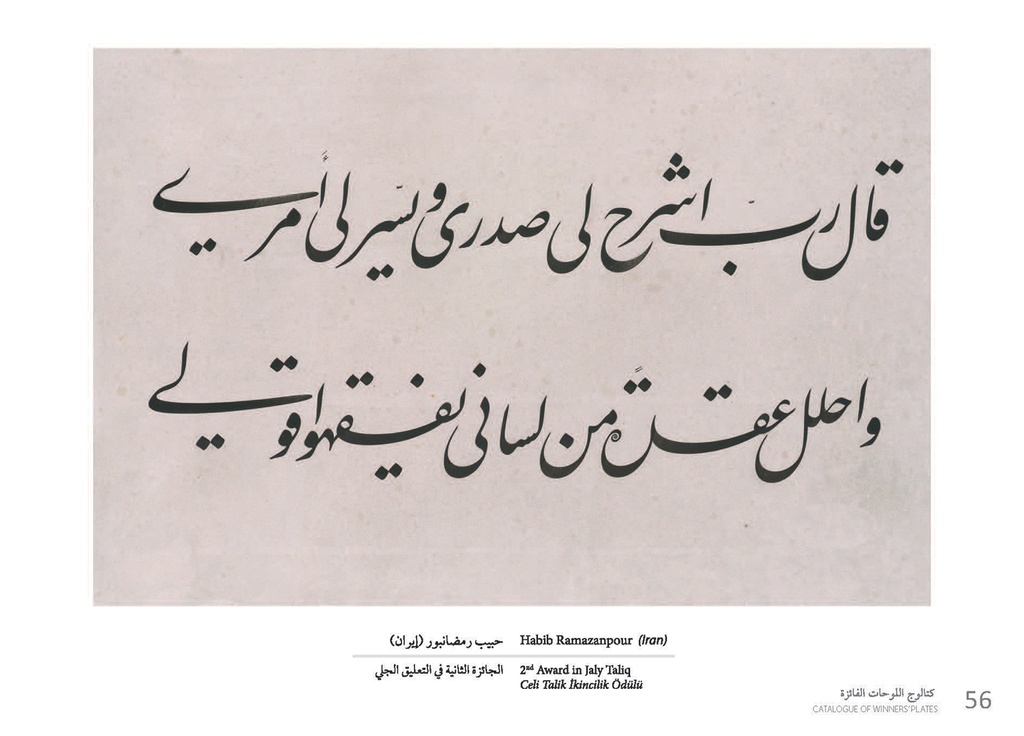 قال رب اشرح لى صدرى ويسّر لى أمرى
واحلل عقدةً من لسانى يفقهوا قولى
حبيب رمضانبور (إيران)
Habib Ramazanpour (Iran)
الجائزة الثانية في التعليق الجلي
2nd Award in Jaly Taliq
Celi Talik İkincilik Ödülü
كتالوج اللوحات الفائزة
CATALOGUE OF WINNERS'PLATES
56